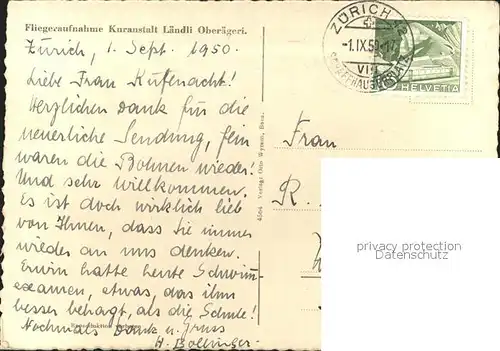 Fliegeraufnahme Kuranstalt Ländli Oberägeri.
Zürich, 1. Sept. 1950.
Liebe Frau Küfenacht!
Herzlichen Dank für die
neuerliche Sendung, fein
waren die Bohnen wieder.
Und sehr willkommen.
Es ist doch wirklich lieb
von Ihnen, dass Sie immer
wieder an uns denken.
Erwin hatte heute Schwimm-
examen, etwas, das ihm
besser behagt, als die Schule!
Nochmals Dank u. Gruss
H. Bollinger
4564 Verlag: Otto Wyrsch, Bern.
ZÜRICH 32
-1.IX.50-17
VII
HELVETIA
Frau
R.
privacy protection
Datenschutz